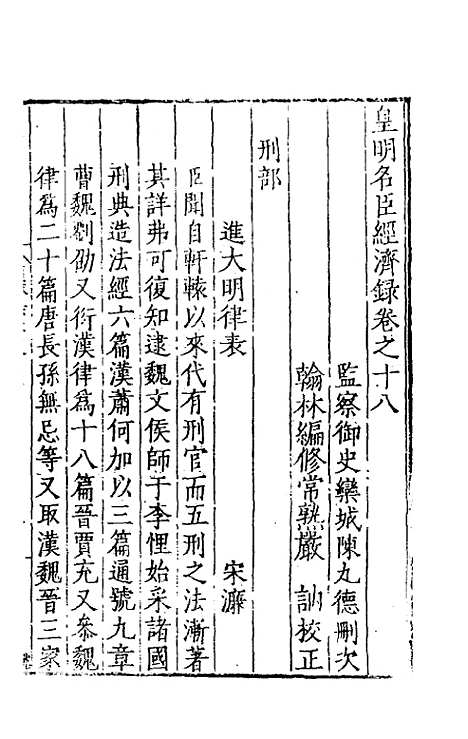 皇明名臣經濟錄卷之十八
監察御史欒城陳九德刪次
翰林編修常熟嚴 訥校正
刑部
進大明律表 宋濂
臣聞自軒轅以來代有刑官而五刑之法漸著
其詳弗可復知逮魏文侯師于李悝始采諸國
刑典造法經六篇漢蕭何加以三篇通號九章
曹魏劉劭又衍漢律爲十八篇晉賈充又參魏
律爲二十篇唐長孫無忌等又取漢魏晉三家